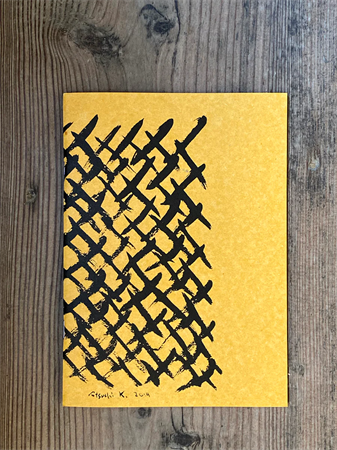 Atsushi K. 2019